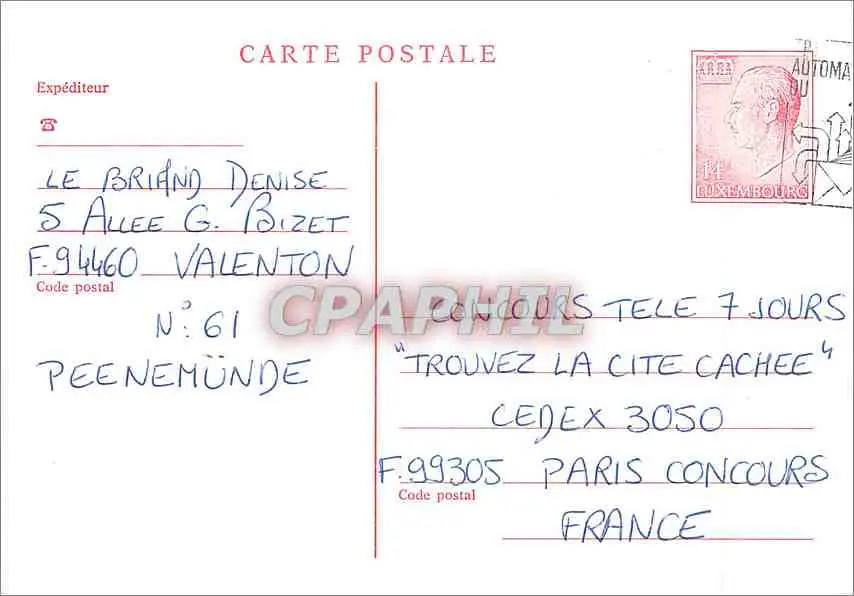 CARTE POSTALE
Expéditeur
LE BRIAND DENISE
5 ALLEE G. BIZET
F.94460 VALENTON
Code postal
N°: 61
PEENEMÜNDE
14
LUXEMBOURG
AUTOMA
DU
CPAPHIL
CONCOURS TELE 7 JOURS
"TROUVEZ LA CITE CACHEE"
CEDEX 3050
F.99305 PARIS CONCOURS
Code postal
FRANCE